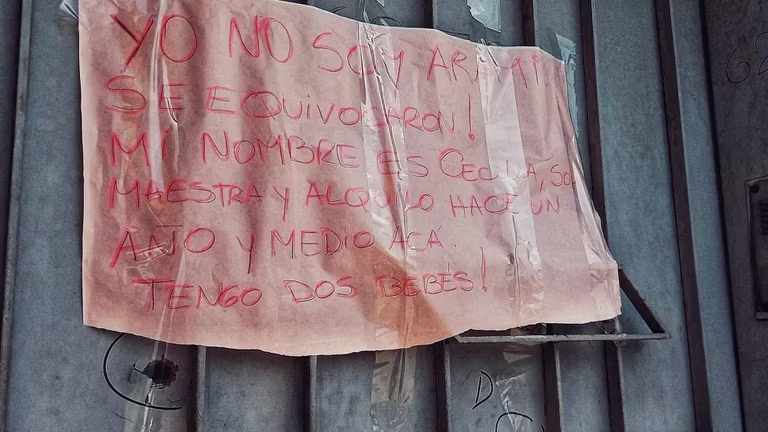 YO NO SOY ARAMI.
SE EQUIVOCARON!
MI NOMBRE ES CECILIA, SOY
MAESTRA Y ALQUILO HACE UN
AÑO Y MEDIO ACÁ.
TENGO DOS BEBES!